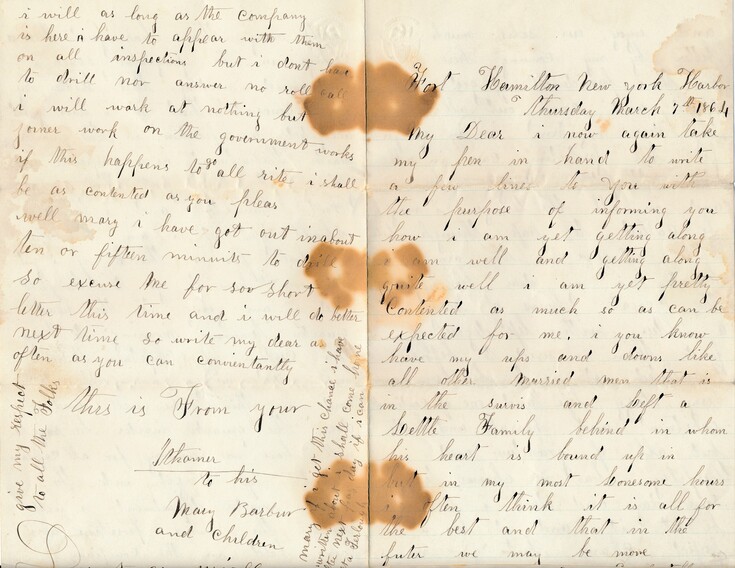 Fort Hamilton New York Harbor
Thursday March 7th 1864
My Dear i now again take
my pen in hand to write
a few lines to you with
the purpose of informing you
how i am yet getting along
i am well and getting along
quite well i am yet pretty
Contented as much so as can be
expected for me. i you know
have my ups and downs like
all other Married men that is
in the survis and Left a
Little Family behind in whom
his heart is bound up in
but in my most lonesome hours
i often think it is all for
the best and that in the
futer we may be more
i will as long as the company
is here i have to appear with them
on all inspections but i dont have
to drill nor answer no roll call
i will work at nothing but
joiner work on the government works
if this happens to do all rite i shall
be as contented as you pleas
well mary i have got out in about
ten or fifteen minuits to drill
so excuse me for soo short
letter this time and i will do better
next time so write my dear as
often as you can conviantly
this is From your
to his
Mary Barbur
and Children
give my respect
to all the Folks
mary if i get this chance i have
writing about i shall come home
the next pay day if i can